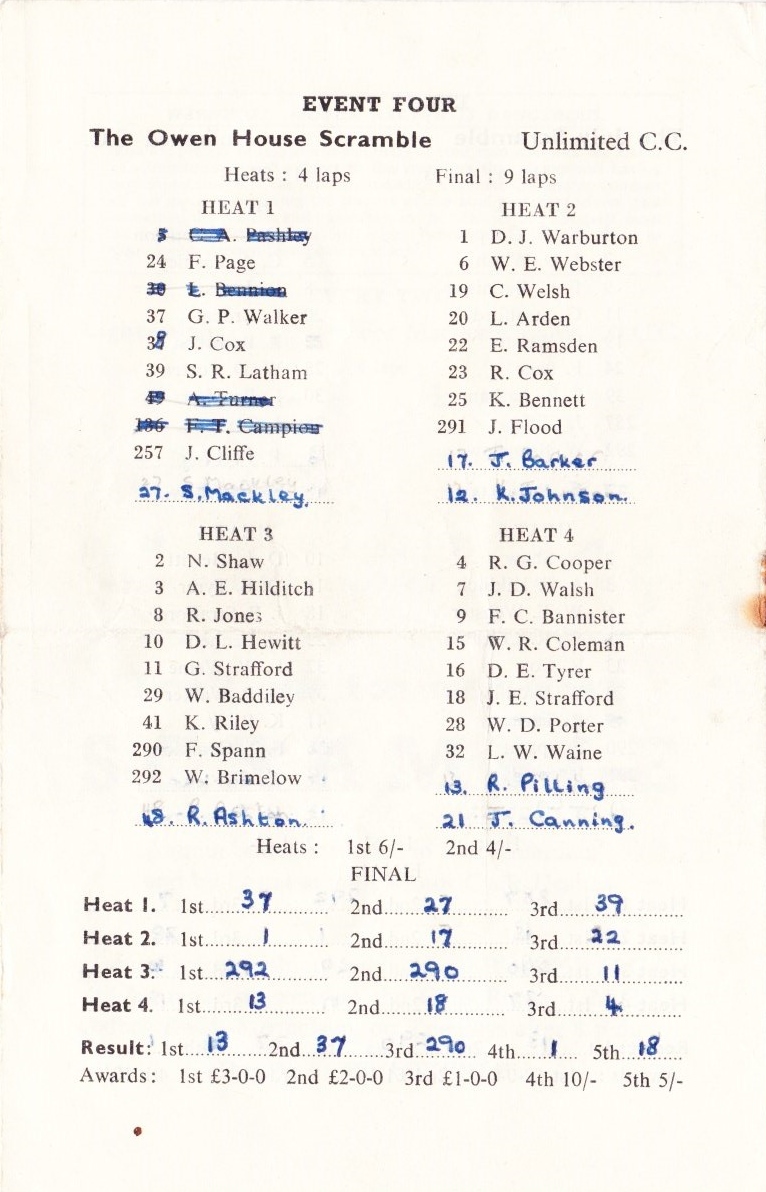 EVENT FOUR
The Owen House Scramble Unlimited C.C.
Heats : 4 laps Final : 9 laps
HEAT 1
5 C. A. Pashley
24 F. Page
30 L. Bennion
37 G. P. Walker
38 J. Cox
39 S. R. Latham
49 A. Turner
186 F. T. Campion
257 J. Cliffe
27. S. Mackley.
HEAT 2
1 D. J. Warburton
6 W. E. Webster
19 C. Welsh
20 L. Arden
22 E. Ramsden
23 R. Cox
25 K. Bennett
291 J. Flood
17. J. Barker
12. K. Johnson.
HEAT 3
2 N. Shaw
3 A. E. Hilditch
8 R. Jones
10 D. L. Hewitt
11 G. Strafford
29 W. Baddiley
41 K. Riley
290 F. Spann
292 W. Brimelow
48. R. Ashton.
HEAT 4
4 R. G. Cooper
7 J. D. Walsh
9 F. C. Bannister
15 W. R. Coleman
16 D. E. Tyrer
18 J. E. Strafford
28 W. D. Porter
32 L. W. Waine
13. R. Pilling
21 J. Canning.
Heats : 1st 6/- 2nd 4/-
FINAL
Heat 1. 1st 37 2nd 27 3rd 39
Heat 2. 1st 1 2nd 17 3rd 22
Heat 3. 1st 292 2nd 290 3rd 11
Heat 4. 1st 13 2nd 18 3rd 4
Result: 1st 13 2nd 37 3rd 290 4th 1 5th 18
Awards: 1st £3-0-0 2nd £2-0-0 3rd £1-0-0 4th 10/- 5th 5/-